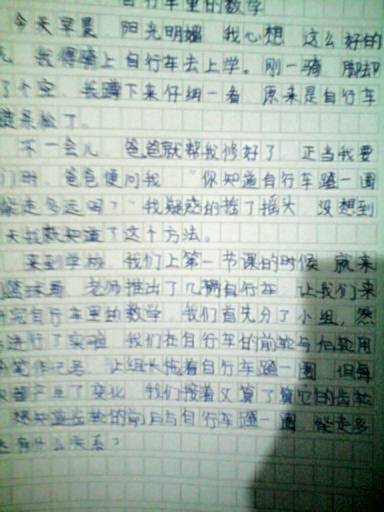 自行车里的数学
今天早晨 阳光明媚 我心想 这么好的
我得骑上自行车去上学。刚一骑 脚却
了个空 我蹲下来仔细一看 原来是自行车
链条松了。
不一会儿 爸爸就帮我修好了 正当我要
门时 爸爸便问我 "你知道自行车蹬一圈
能走多远吗?"我疑惑的摇了摇头 没想到
天我就知道了这个方法。
来到学校 我们上第一节课的时候 就来
篮球场 老师推出了几辆自行车 让我们来
究自行车里的数学 我们首先分了小组,然
进行了实验 我们在自行车的前轮与后轮用
笔作记号 让组长推着自行车蹬一圈 但每
产生了变化 我们接着又算了算它的齿轮
想知道齿轮的前后与自行车蹬一圈 能走多
远有什么关系?